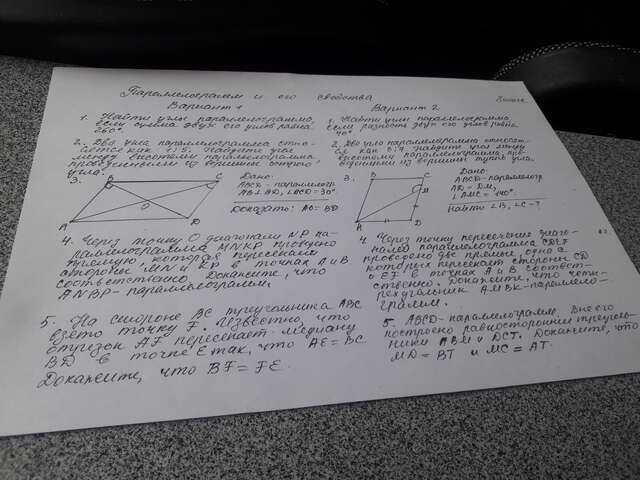 Параллелограмм и его свойства
Вариант 1
1. Найти углы параллелограмма,
если сумма двух его углов равна
260°.
2. Два угла параллелограмма отно-
сятся как 1:5. Найдите угол
между высотами параллелограмма,
проведенными из вершины острого
угла.
3.
B C
O
A D
Дано:
ABCD - параллелогр.
∠ACD = 30°
Доказать: AC = BD
4. Через точку O диагонали NP па-
раллелограмма MNKP проведена
прямая, которая пересекает
стороны MN и KP в точках A и B
соответственно. Докажите, что
ANBP - параллелограмм.
5. На стороне BC треугольника ABC
взята точка F. Известно, что
отрезок AF пересекает медиану
BD в точке E так, что AE = BC.
Докажите, что BF = FE.
Вариант 2
1. Найти углы параллелограмма,
если разность двух его углов равна
40°.
2. Два угла параллелограмма относят-
ся как
Найдите угол между
высотами параллелограмма, про-
веденными из вершины тупого угла.
3.
B C
M
A D
Дано:
ABCD - параллелогр
AD = DM,
Найти ∠B, ∠C - ?
4. Через точку пересечения диаго-
налей параллелограмма CDEF
проведено две прямые, одна
которых пересекает стороны CD
и EF в точках A и B соответ-
ственно. Докажите, что четы-
рехугольник AMBK - параллело-
грамм.
5. ABCD - параллелограмм. Вне его
построено равносторонние треуголь-
ники ABM и DCT. Докажите, что
MD = BT и MC = AT.